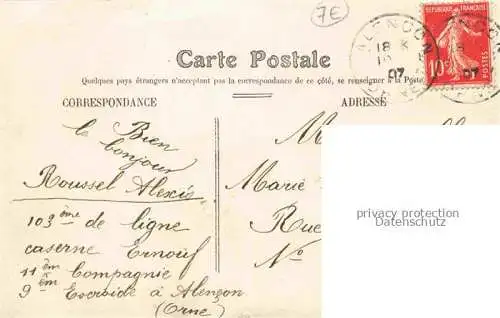 7E
Carte Postale
Quelques pays étrangers n'acceptant pas la correspondance de ce côté, se renseigner à la Poste
CORRESPONDANCE
ADRESSE
RÉPUBLIQUE FRANÇAISE
10c
POSTES
ALENCON
18
07
07
le Bien
bonjour
Roussel Alexis
103ème de ligne
caserne Ernouf
11ème Compagnie
9ème Escouide à Alençon
(Orne)
M
Marie
Rue
No
privacy protection
Datenschutz